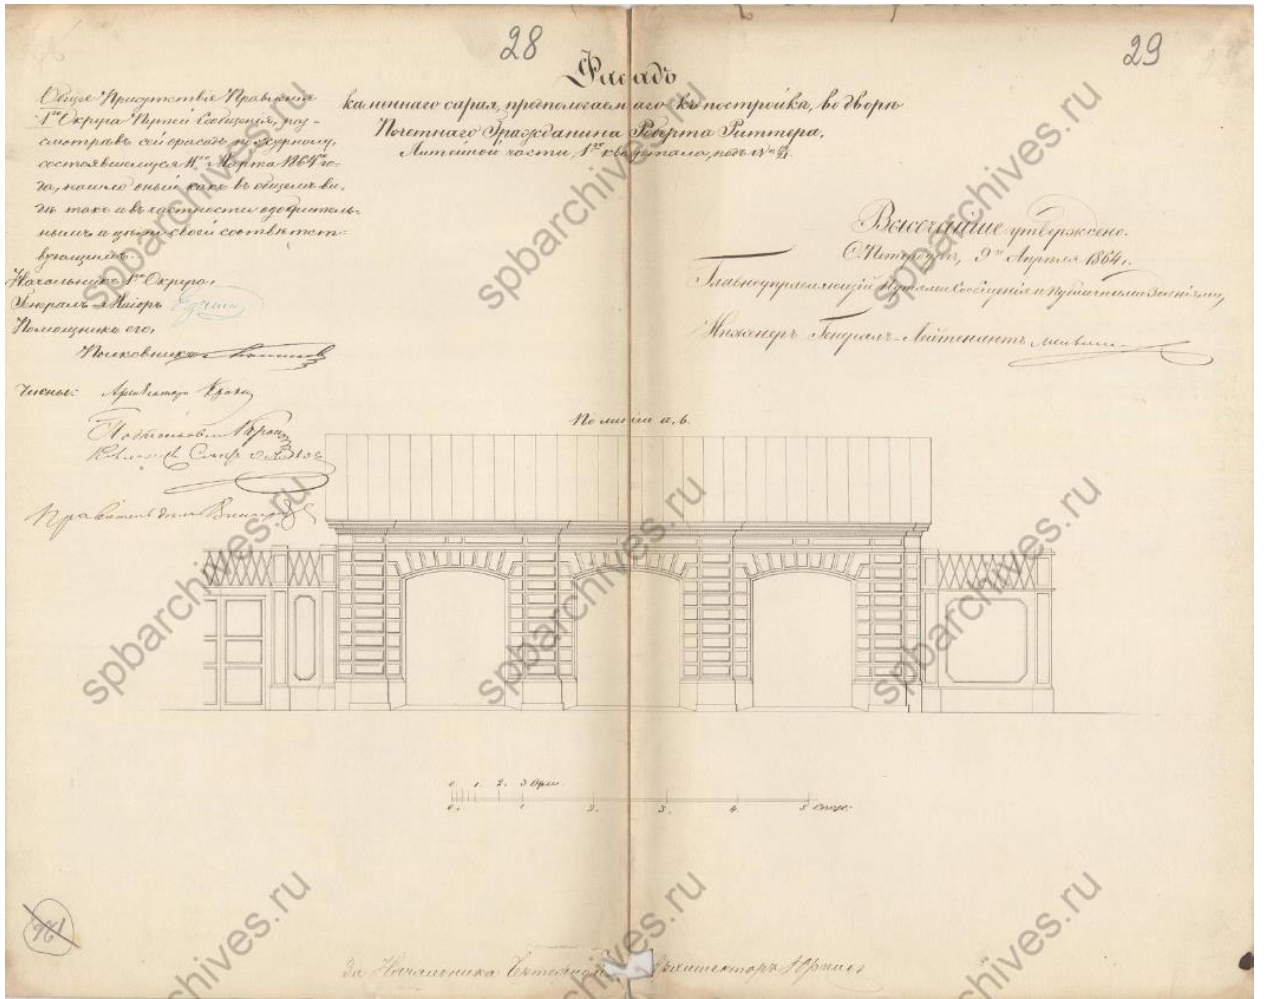 28
29
Фасадъ
каменнаго сарая, предпологаемаго къ постройкѣ, во дворѣ
Почетнаго Гражданина Роберта Риттера,
Литейной части, 1го квартала, подъ №
Общее Присутствіе Правленія
1го Округа Путей Сообщенія, раз-
смотрѣвъ сей фасадъ по журналу,
состоявшемуся 11го Марта 1864 го-
да, нашло оный какъ въ общемъ ви-
дѣ такъ и въ частности одобритель-
нымъ и цѣли своей соотвѣтст-
вующимъ.
Начальникъ 1го Округа,
Генералъ-Маіоръ
Помощникъ его,
Полковникъ
Члены: Архитекторъ
Подполковникъ
Правитель дѣлъ
Высочайше утверждено.
С. Петербургъ, 9го Апрѣля 1864 г.
Главноуправляющій Путями Сообщенія и Публичными Зданіями,
Инженеръ Генералъ-Лейтенантъ Мельниковъ
По линіи а, в.
0. 1. 2. 3 Арш.
0. 1 2. 3. 4 5 Саж.
За Начальника Чертежной Архитекторъ
spbarchives.ru
spbarchives.ru
spbarchives.ru
spbarchives.ru
spbarchives.ru
spbarchives.ru
spbarchives.ru
spbarchives.ru
spbarchives.ru